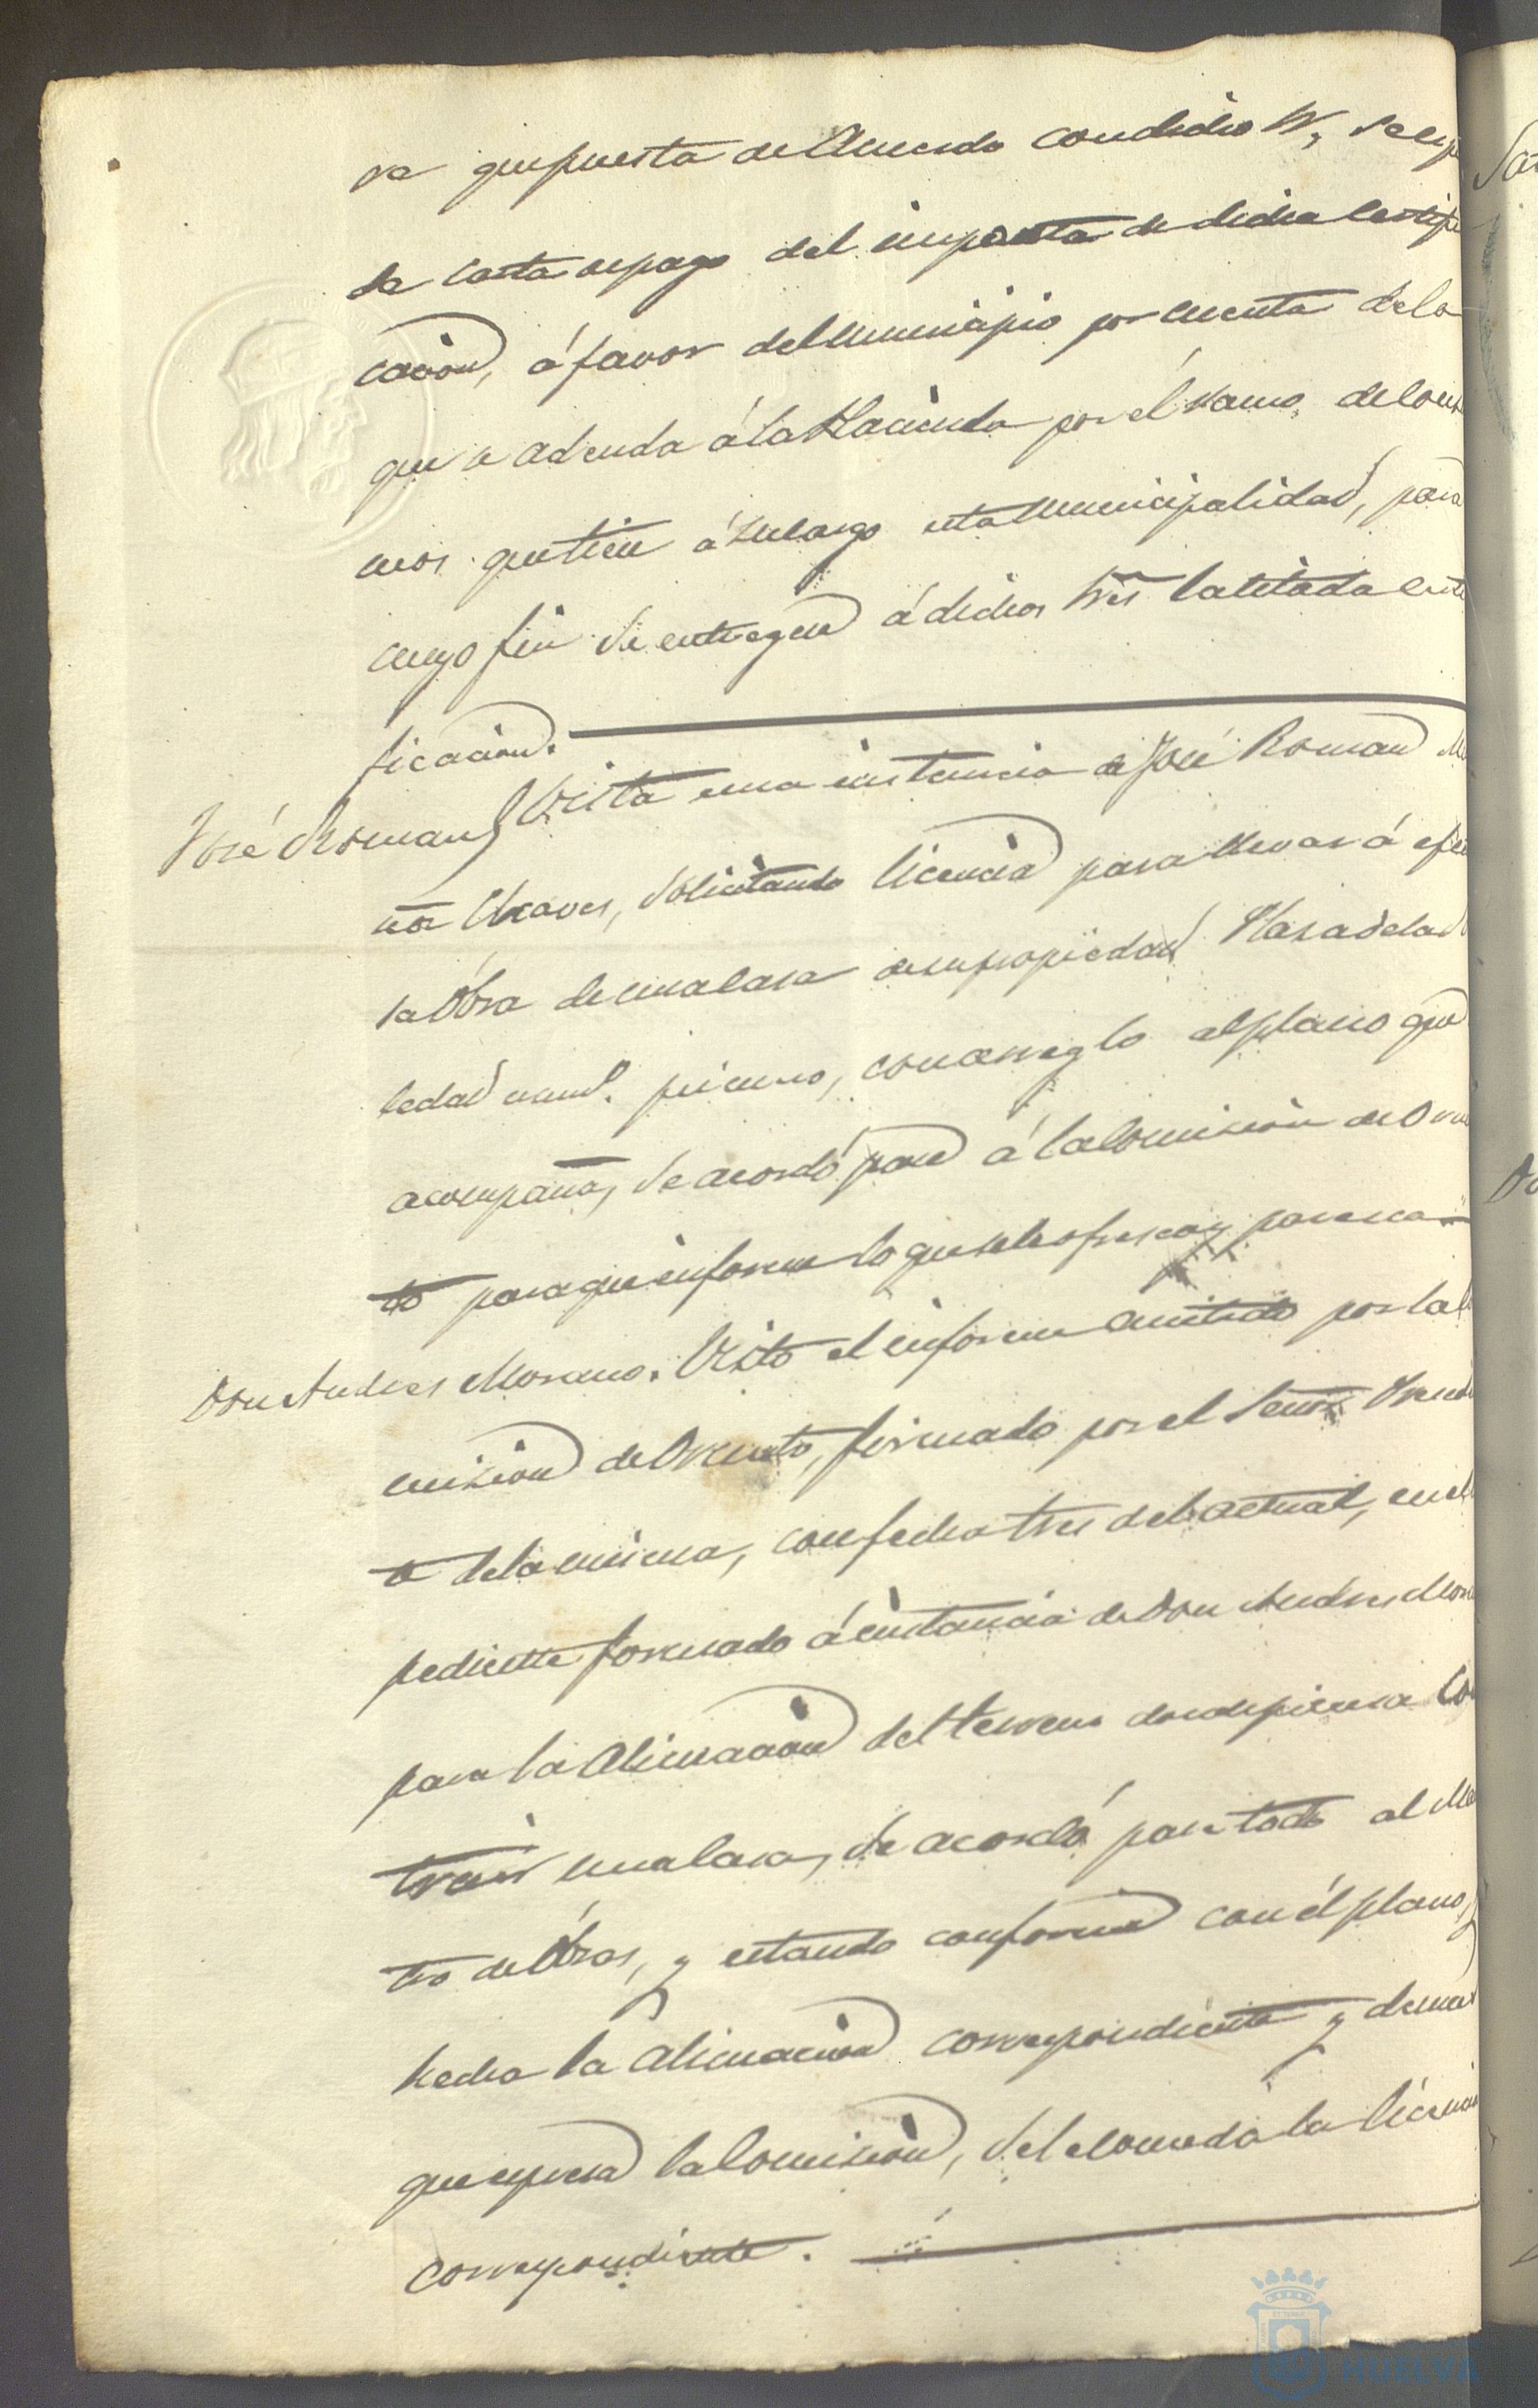 ra propuesta de Acuerdo con dicho Sr, se espi
da carta de pago del importe de dicha Certifi
cación, á favor del Municipio por cuenta de lo
que se adeuda á la Hacienda por el ramo de Consu
mos que tiene á su cargo esta Municipalidad, para
cuyo fin se entregue á dichos Sres la citada Certi
ficación.
José Roman Vista una instancia de José Roman
Chaves, solicitando licencia para llevar á efec
la Obra de una Casa de su propiedad Plaza de la So
ledad num.º primero, con arreglo al plano que
acompaña, se acordó pase á la Comisión de Orna
to para que informe lo que se le ofrezca y parezca
Don Andres Moreno. Visto el informe emitido por la Co
misión de Ornato, firmado por el Señor Presiden
te de la misma, con fecha tres del actual, en el
pediente formado á instancia de Don Andres More
para la Alineación del terreno donde piensa Cons
truir una Casa, se acordó pase todo al Maes
tro de Obras, y estando conforme con él plano, y
hecha la Alineación correspondiente y demas
que espresa la Comisión, se le conceda la licencia
correspondiente.
HUELVA